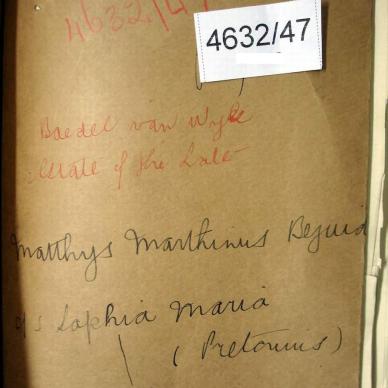 4632/47
4632/47
Boedel van Wyle
Estate of the Late
Matthys Marthinus Beguid
o/s Sophia Maria
(Pretorius)